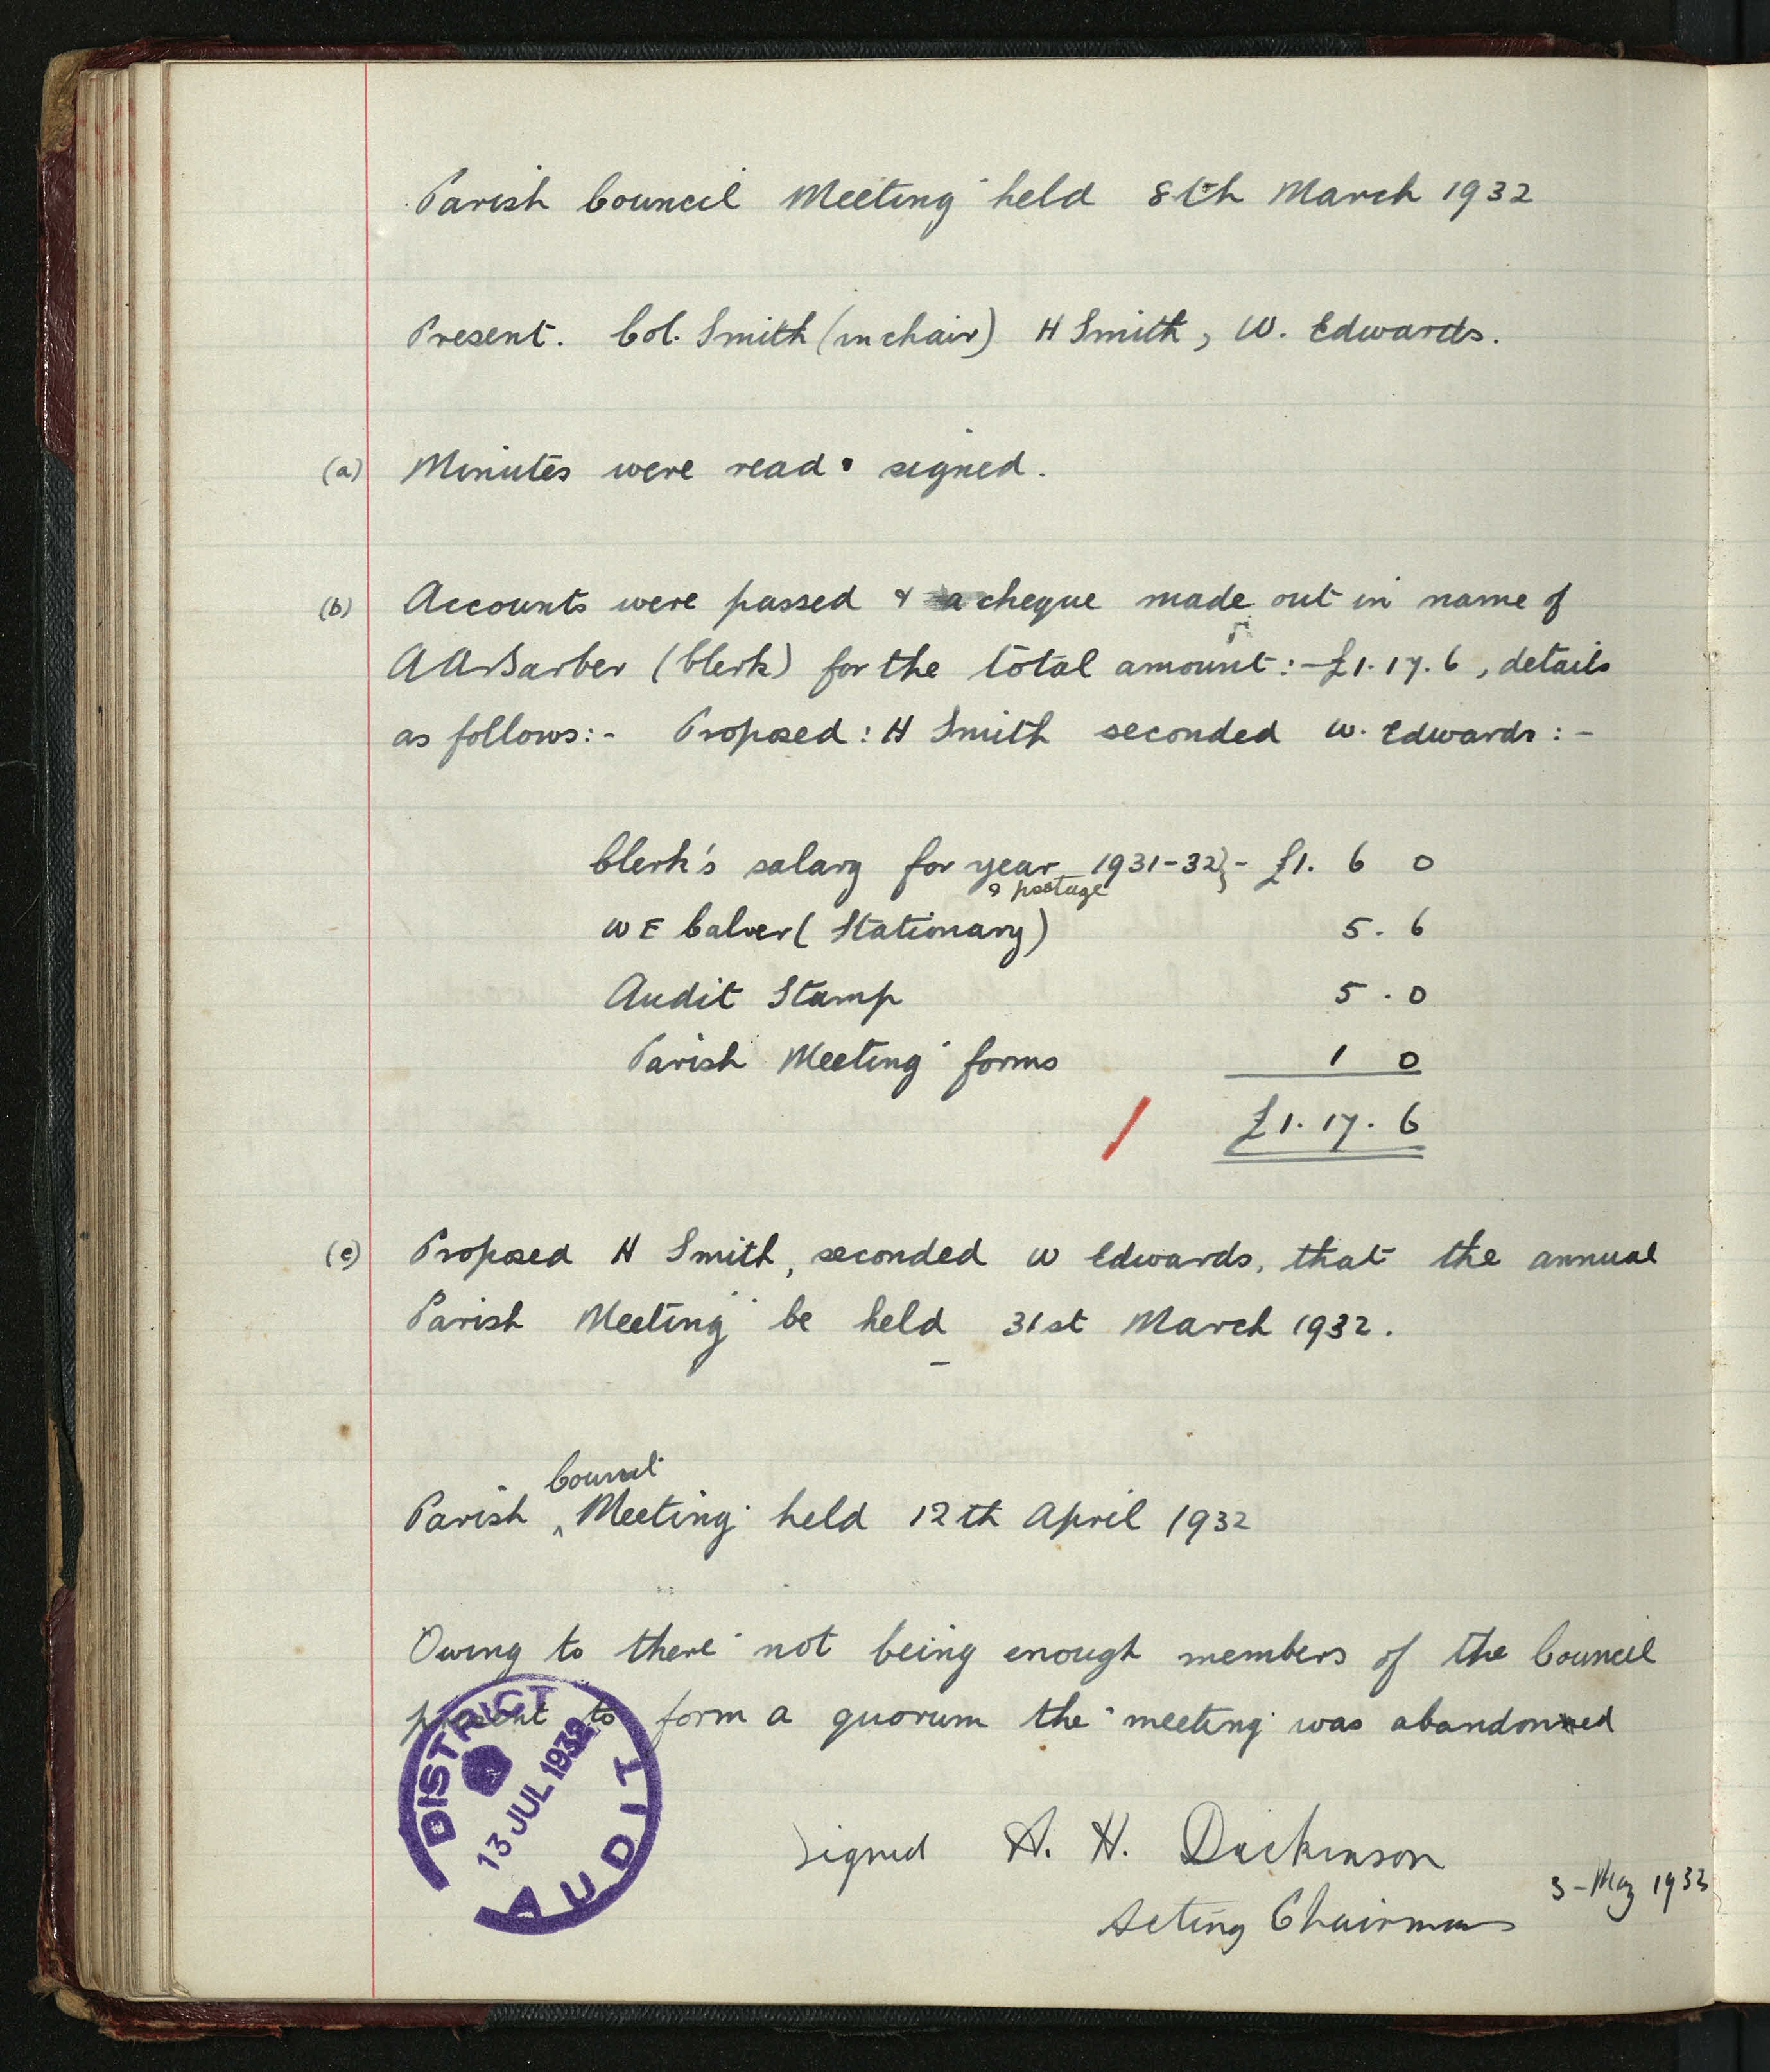 Parish Council Meeting held 8th March 1932
Present. Col. Smith (in chair) H Smith, W. Edwards.
(a) Minutes were read & signed.
(b) Accounts were passed & a cheque made out in name of
A A Barber (Clerk) for the total amount:- £1. 17. 6, details
as follows:- Proposed: H Smith seconded W. Edwards:-
Clerk's salary for year 1931-32} - £1. 6 0
& postage
W E Calver (Stationary) 5. 6
Audit Stamp 5. 0
Parish Meeting forms 1 0
£1. 17. 6
(c) Proposed H Smith, seconded W Edwards, that the annual
Parish Meeting be held 31st March 1932.
Parish Council Meeting held 12th April 1932
Owing to there not being enough members of the Council
present to form a quorum the meeting was abandoned
DISTRICT AUDIT
13 JUL 1932
Signed A. H. Dickinson
Acting Chairman
3 - May 1932